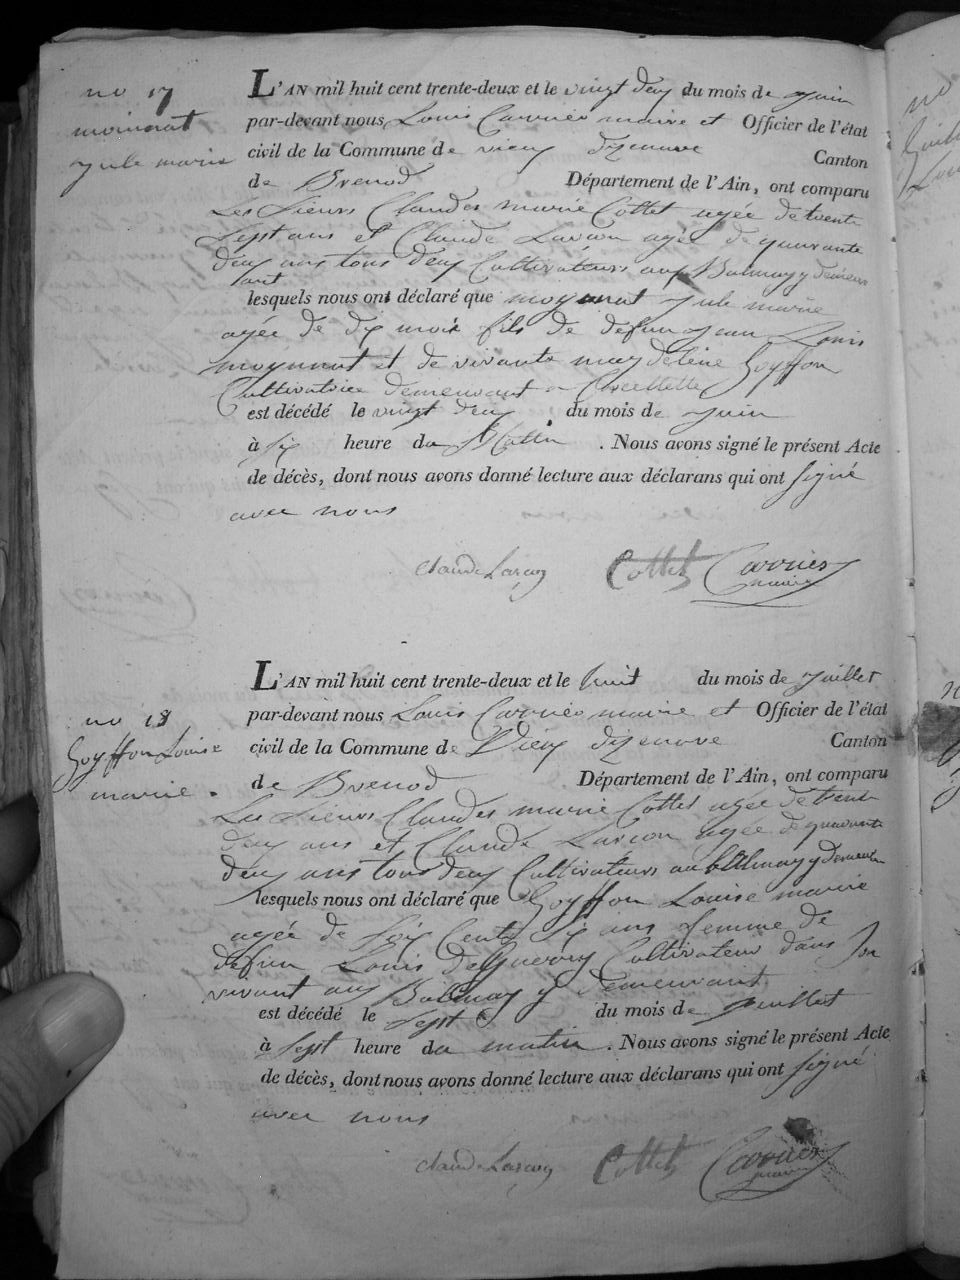 no 17
moinnat
jule marie
L'AN mil huit cent trente-deux et le vingt deux du mois de juin
par-devant nous Louis Carrier maire et Officier de l'état
civil de la Commune de vieux dizenave Canton
de Brenod Département de l'Ain, ont comparu
Les Sieurs Claudes marie Cottet agée de trente
Sept ans et Claude Larçon agée de quarante
deux ans tous deux Cultivateurs aux Balmay y demeu
rant
lesquels nous ont déclaré que moynnat jule marie
agée de dix mois fils de defun jean Louis
moynnat et de vivante Goyffon
Cultivatrice demeurant a
est décédé le vingt deux du mois de juin
à six heure du Matin . Nous avons signé le présent Acte
de décès, dont nous avons donné lecture aux déclarans qui ont signé
avec nous
Claude Larçon Cottet Carrier
maire
L'AN mil huit cent trente-deux et le huit du mois de juillet
par-devant nous Louis Carrier maire et Officier de l'état
no 18
Goyffon Louise
marie.
civil de la Commune de Vieux dizenove Canton
de Brenod Département de l'Ain, ont comparu
Les Sieurs Claudes marie Cottet agée de trente
deux ans et Claude Larçon agée de quarante
deux ans tous deux Cultivateurs au Balmay y demeurant
lesquels nous ont déclaré que Goyffon Louise marie
agée de ans femme de
defun Louis Cultivateur dans son
vivant aux Balmay y demeurant
est décédé le sept du mois de juillet
à sept heure du matin . Nous avons signé le présent Acte
de décès, dont nous avons donné lecture aux déclarans qui ont signé
avec nous
Claude Larçon Cottet Carrier
maire